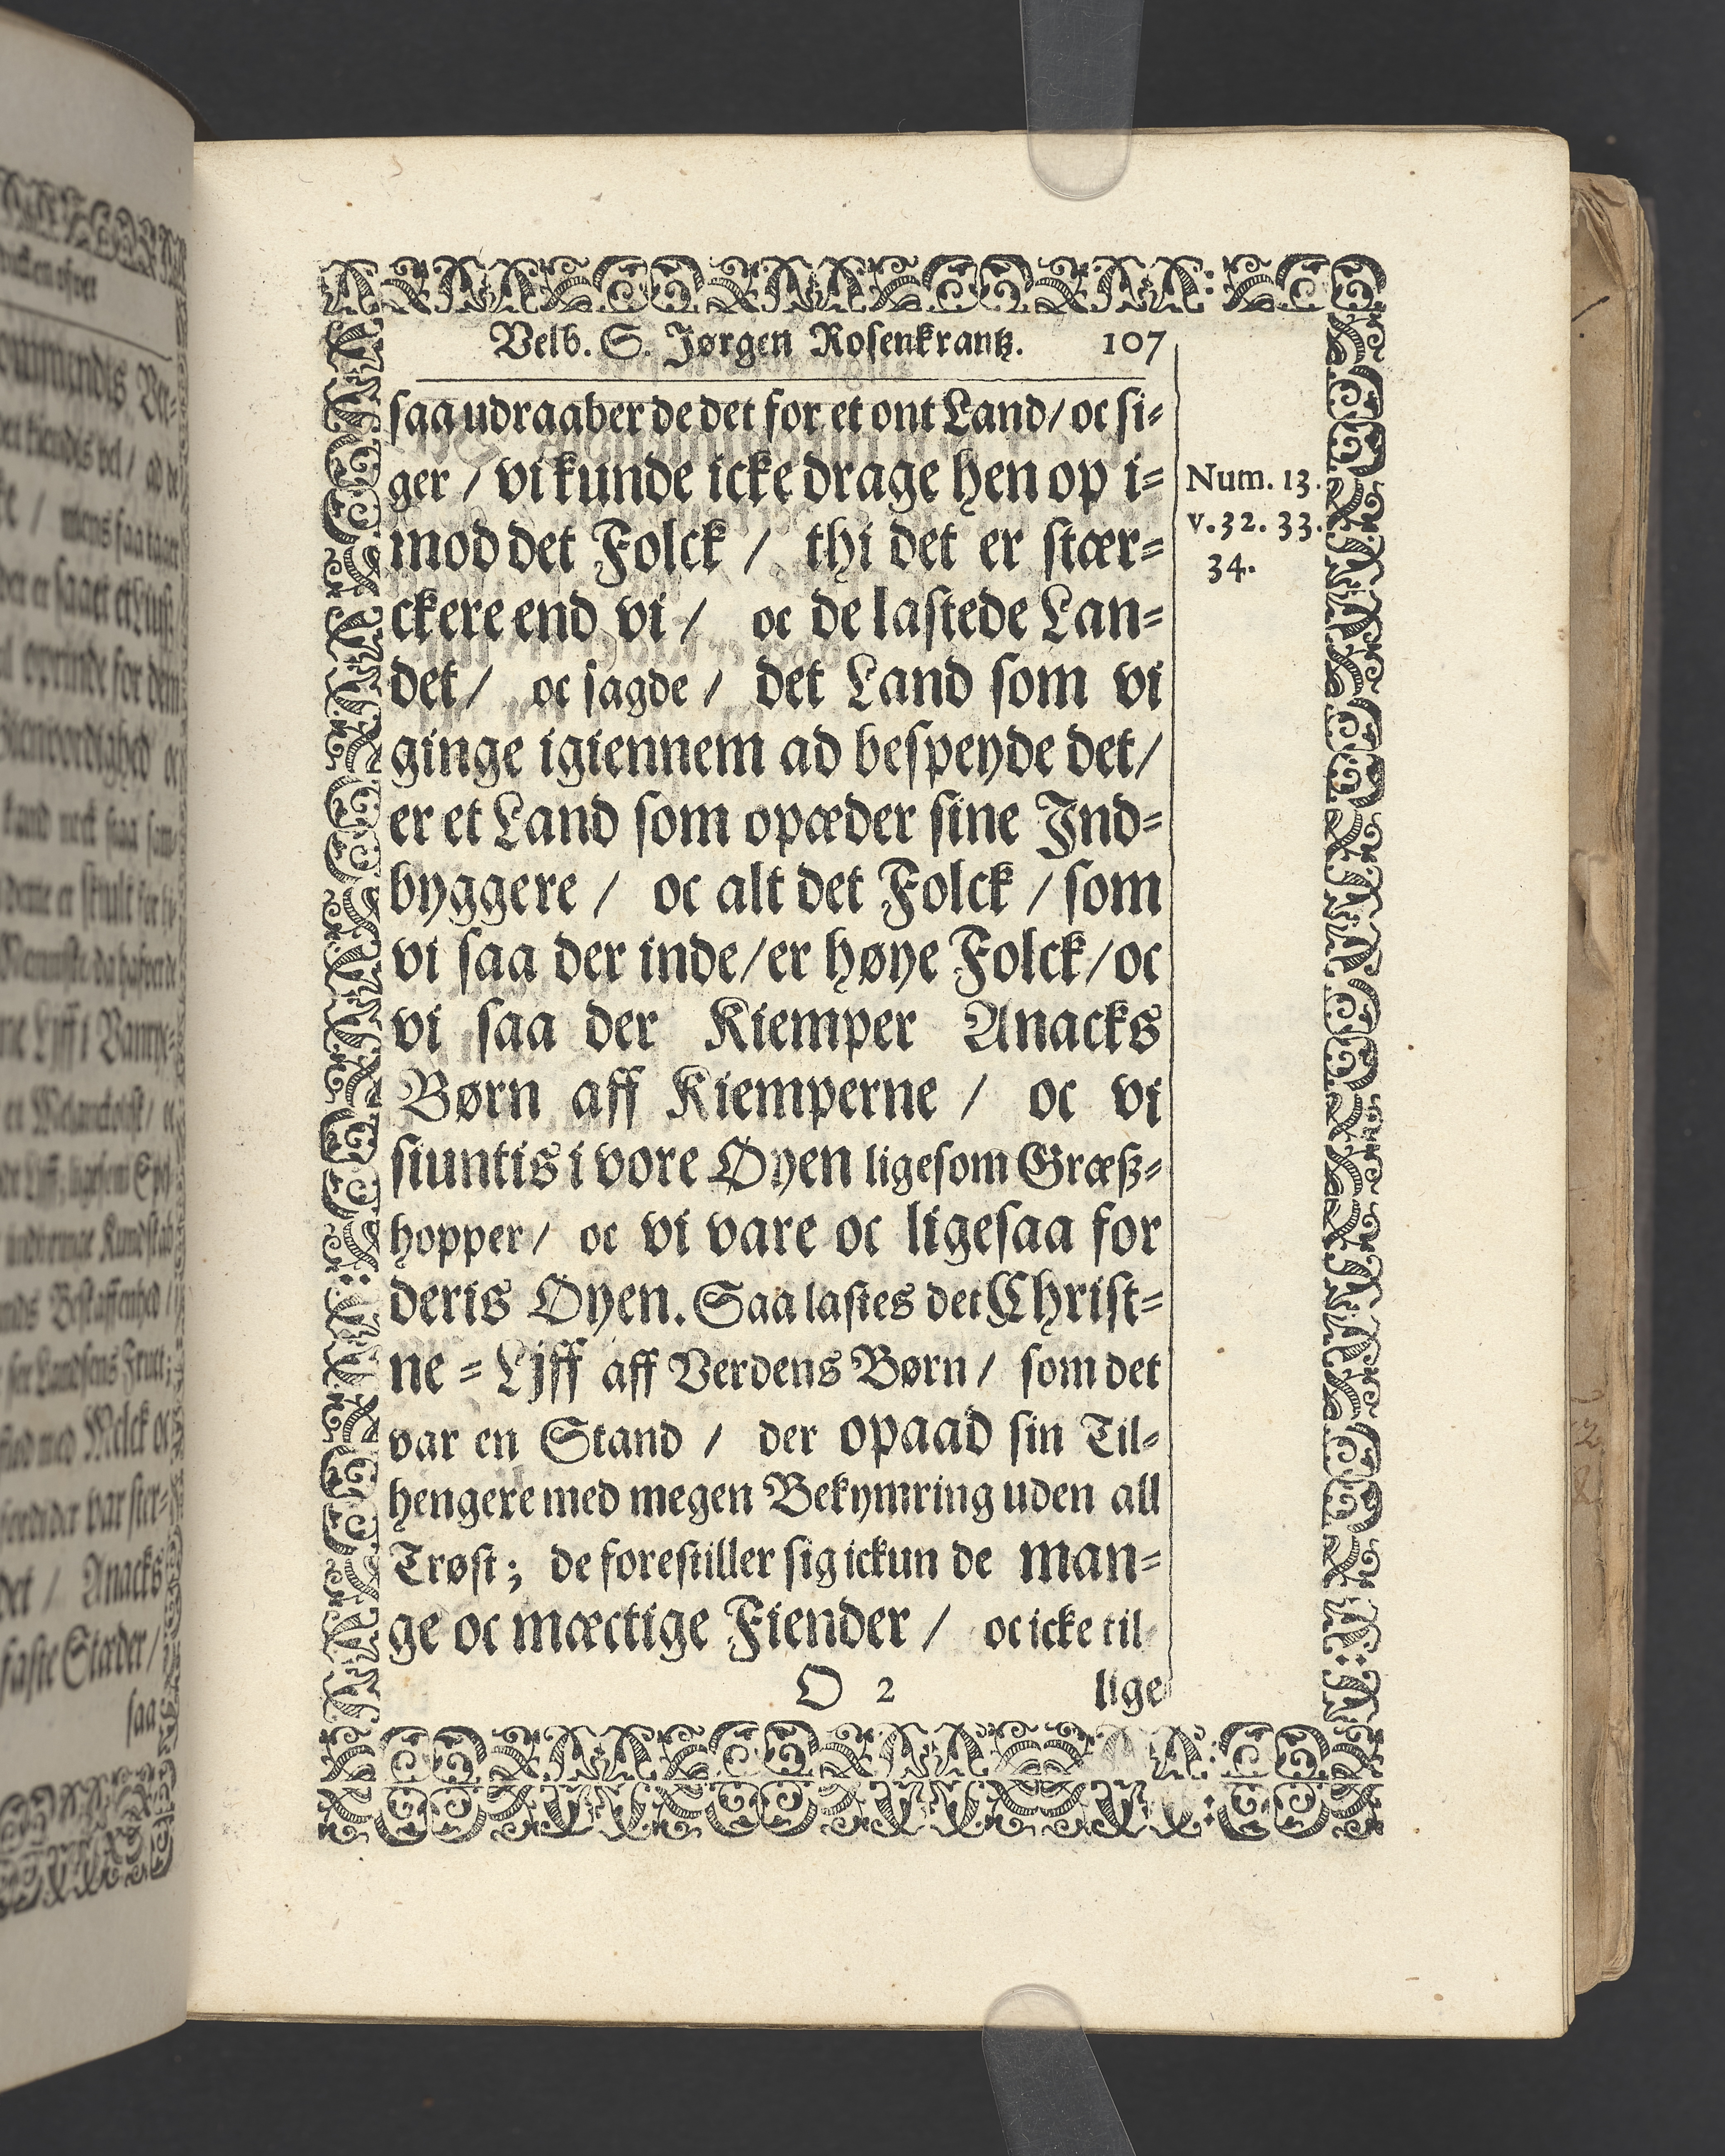 Velb. S. Jørgen Rosenkrantz. 107
saa udraaber de det for et ont Land/ oc si-
ger / vi kunde icke drage hen op i-
mod det Folck / thi det er stær-
ckere end vi / oc de lastede Lan-
det / oc sagde / det Land som vi
ginge igiennem ad bespeyde det/
er et Land som opæder sine Ind-
byggere / oc alt det Folck / som
vi saa der inde/er høye Folck/oc
vi saa der Kiemper Anacks
Børn aff Kiemperne / oc vi
siuntis i vore Øyen ligesom Græsz-
hopper / oc vi vare oc ligesaa for
deris Øyen. Saa lastes det Christ-
ne-Ljff aff Verdens Børn / som det
var en Stand / der opaad sin Til-
hengere med megen Bekymring uden all
Trøst; de forestiller sig ickun de man-
ge oc mæctige Fiender / oc icke til
O 2 lige
Num. 13.
v. 32. 33.
34.